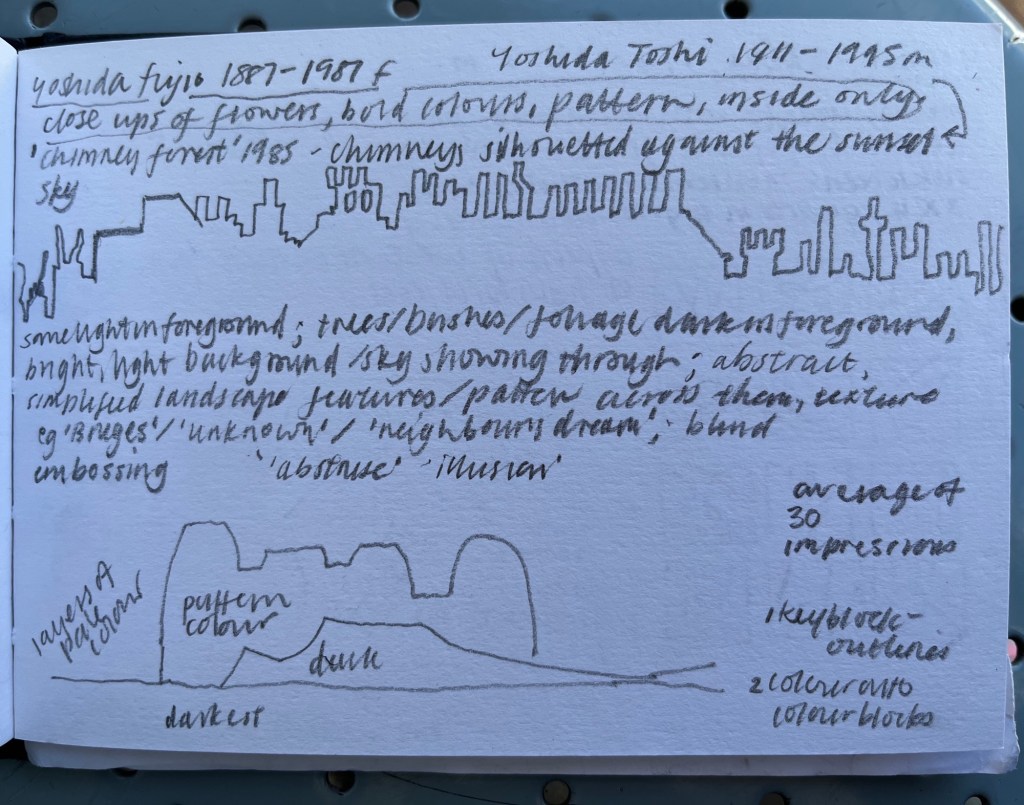 Yoshida Fujio 1887-1987 f
Yoshida Toshi 1911-1995 m
close ups of flowers, bold colours, pattern, inside only,
'chimney forest' 1985 - chimneys silhouetted against the sunset
sky
some light in foreground; trees/bushes/foliage dark in foreground,
bright, light background/sky showing through; abstract,
simplified landscape features/pattern across them, texture
eg 'Bruges'/'unknown'/ 'neighbours dream'; blind
embossing 'abstruse' illusion'
average of
30
impressions
layers of
pale
colour
pattern
colour
dark
1 keyblock -
outlines
2 colour onto
colour blocks
darkest